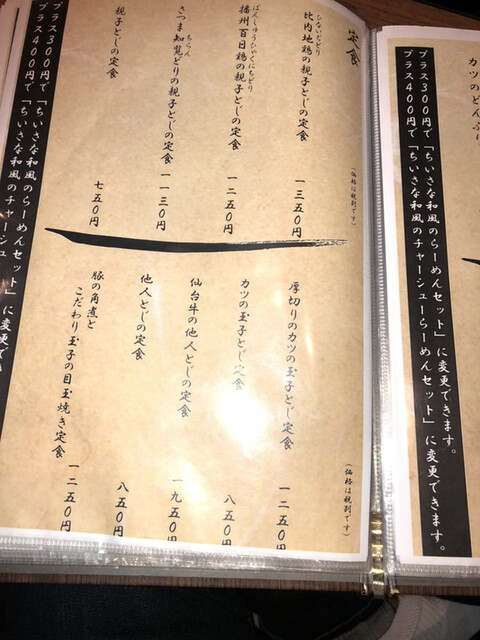 カツのどんぶ
プラス300円で「ちいさな和風のらーめんセット」に変更できます。
プラス400円で「ちいさな和風のチャーシューらーめんセット」に変更できます。
定食
（価格は税別です）
ひないじどり
比内地鶏の親子とじの定食
一三五〇円
ばんしゅうひゃくにちどり
播州百日鶏の親子とじの定食
一二五〇円
ちらん
さつま知覧どりの親子とじの定食
一一三〇円
親子とじの定食
七五〇円
（価格は税別です）
厚切りのカツの玉子とじ定食
一二五〇円
カツの玉子とじ定食
八五〇円
仙台牛の他人とじの定食
一九五〇円
他人とじの定食
八五〇円
豚の角煮と
こだわり玉子の目玉焼き定食
一二五〇円
プラス300円で「ちいさな和風のらーめんセット」に変更でき
プラス400円で「ちいさな和風のチャーシュ